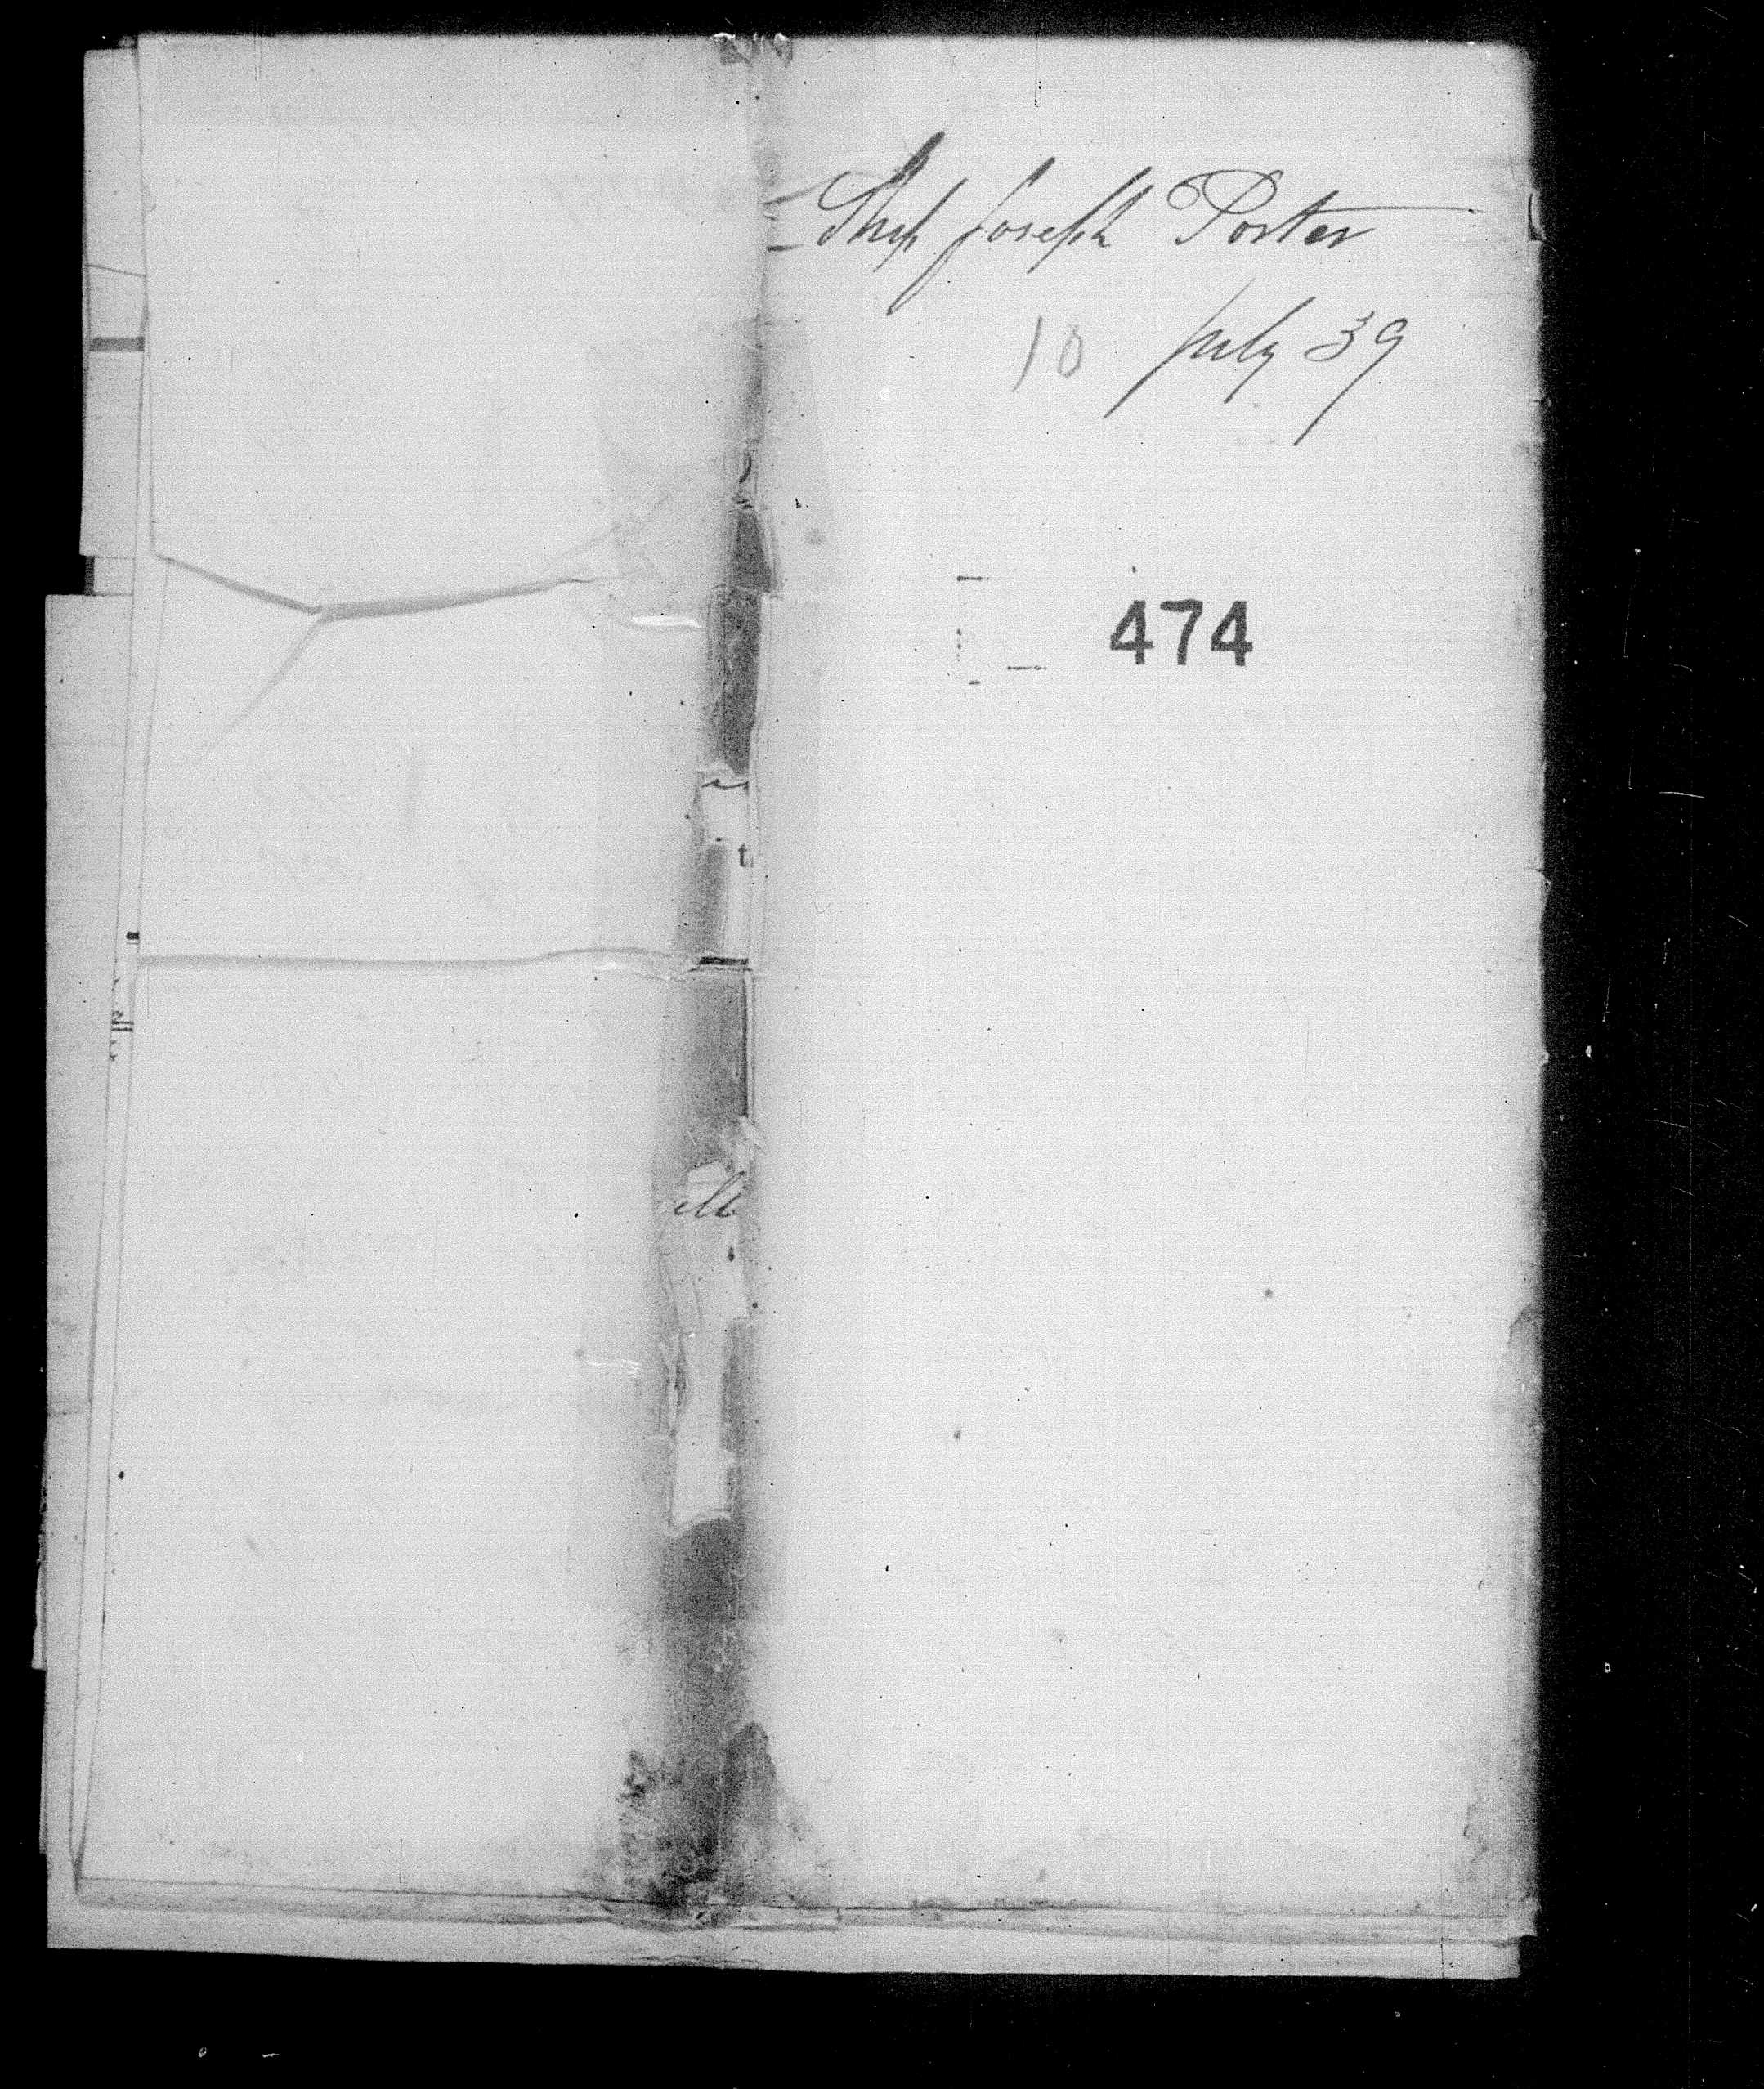 Ship Joseph Porter
10 July 39
474
t
ell